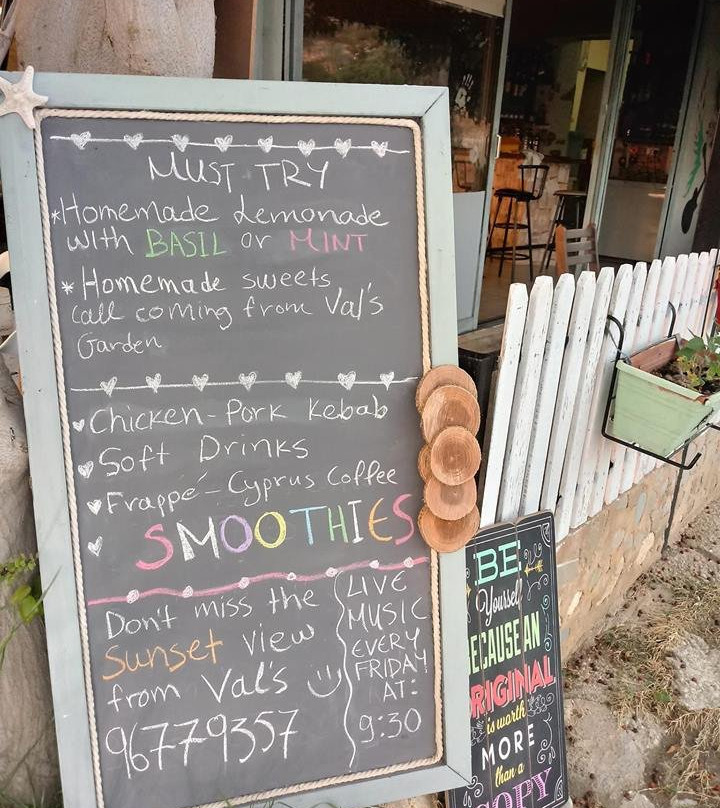 MUST TRY
*Homemade Lemonade
with BASIL or MINT
*Homemade sweets
call coming from Val's
Garden
Chicken-Pork Kebab
Soft Drinks
Frappé-Cyprus Coffee
SMOOTHIES
Don't miss the
Sunset view
from Val's
96779357
LIVE
MUSIC
EVERY
FRIDAY
AT:
9:30
BE
Yourself
BECAUSE AN
ORIGINAL
is worth
MORE
than a
COPY